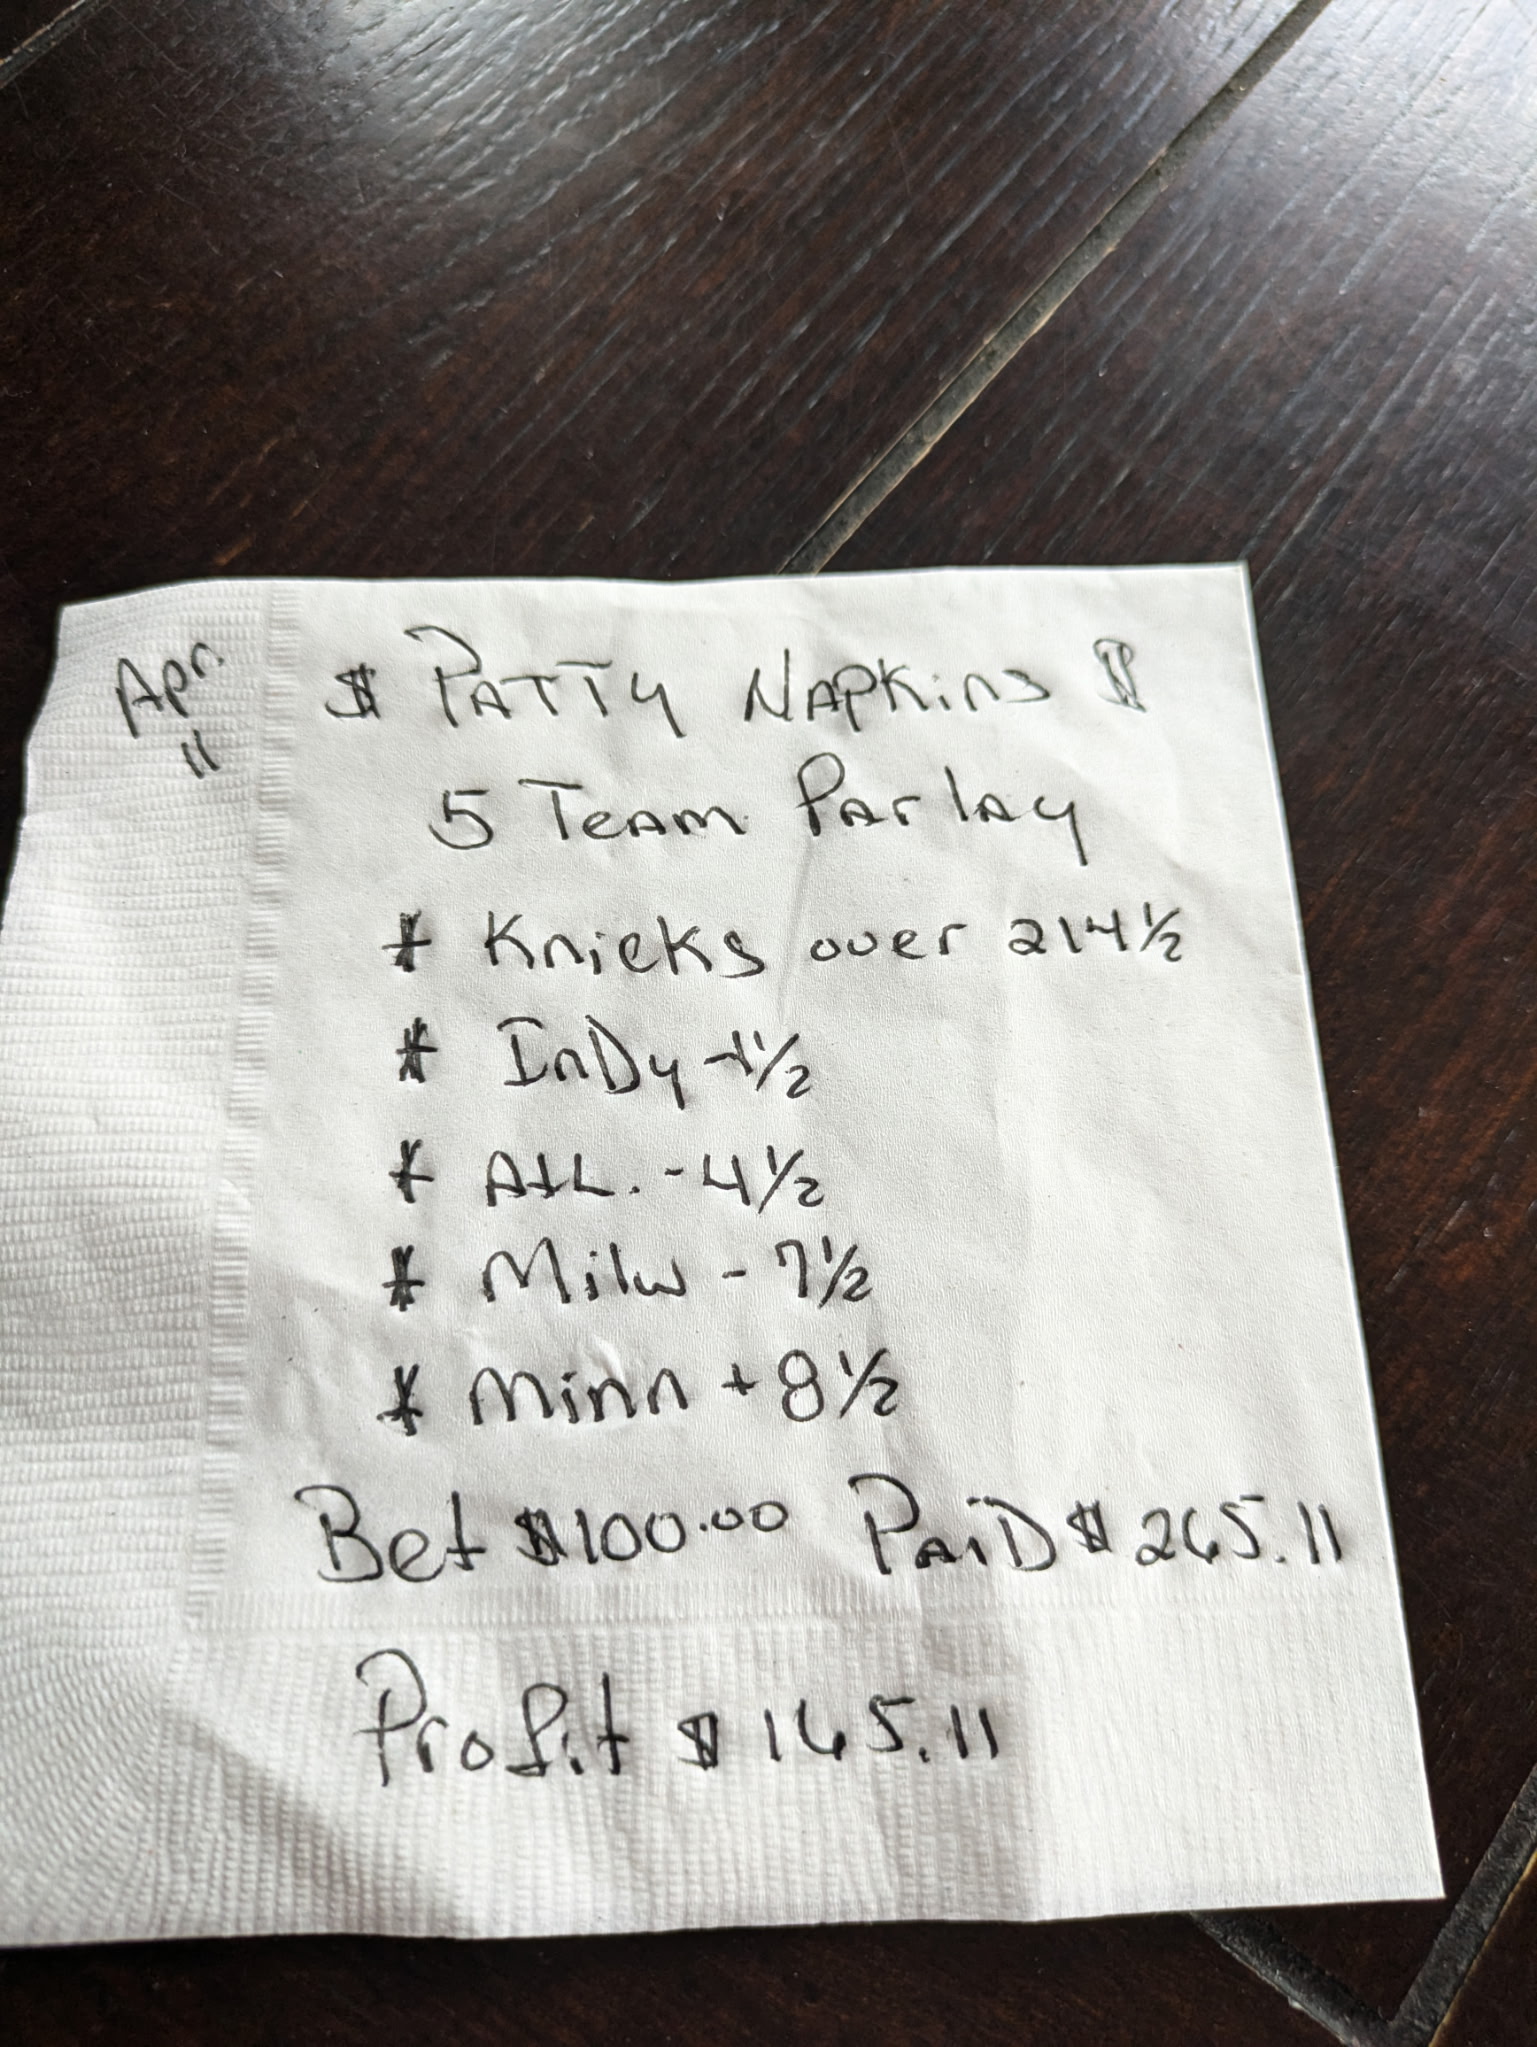 Apr. 11
$ Patty Napkins $
5 Team Parlay
* Knicks over 214 1/2
* Indy +1/2
* Atl. - 4 1/2
* Milw - 7 1/2
* Minn + 8 1/2
Bet $100.00 Paid $265.11
Profit $165.11